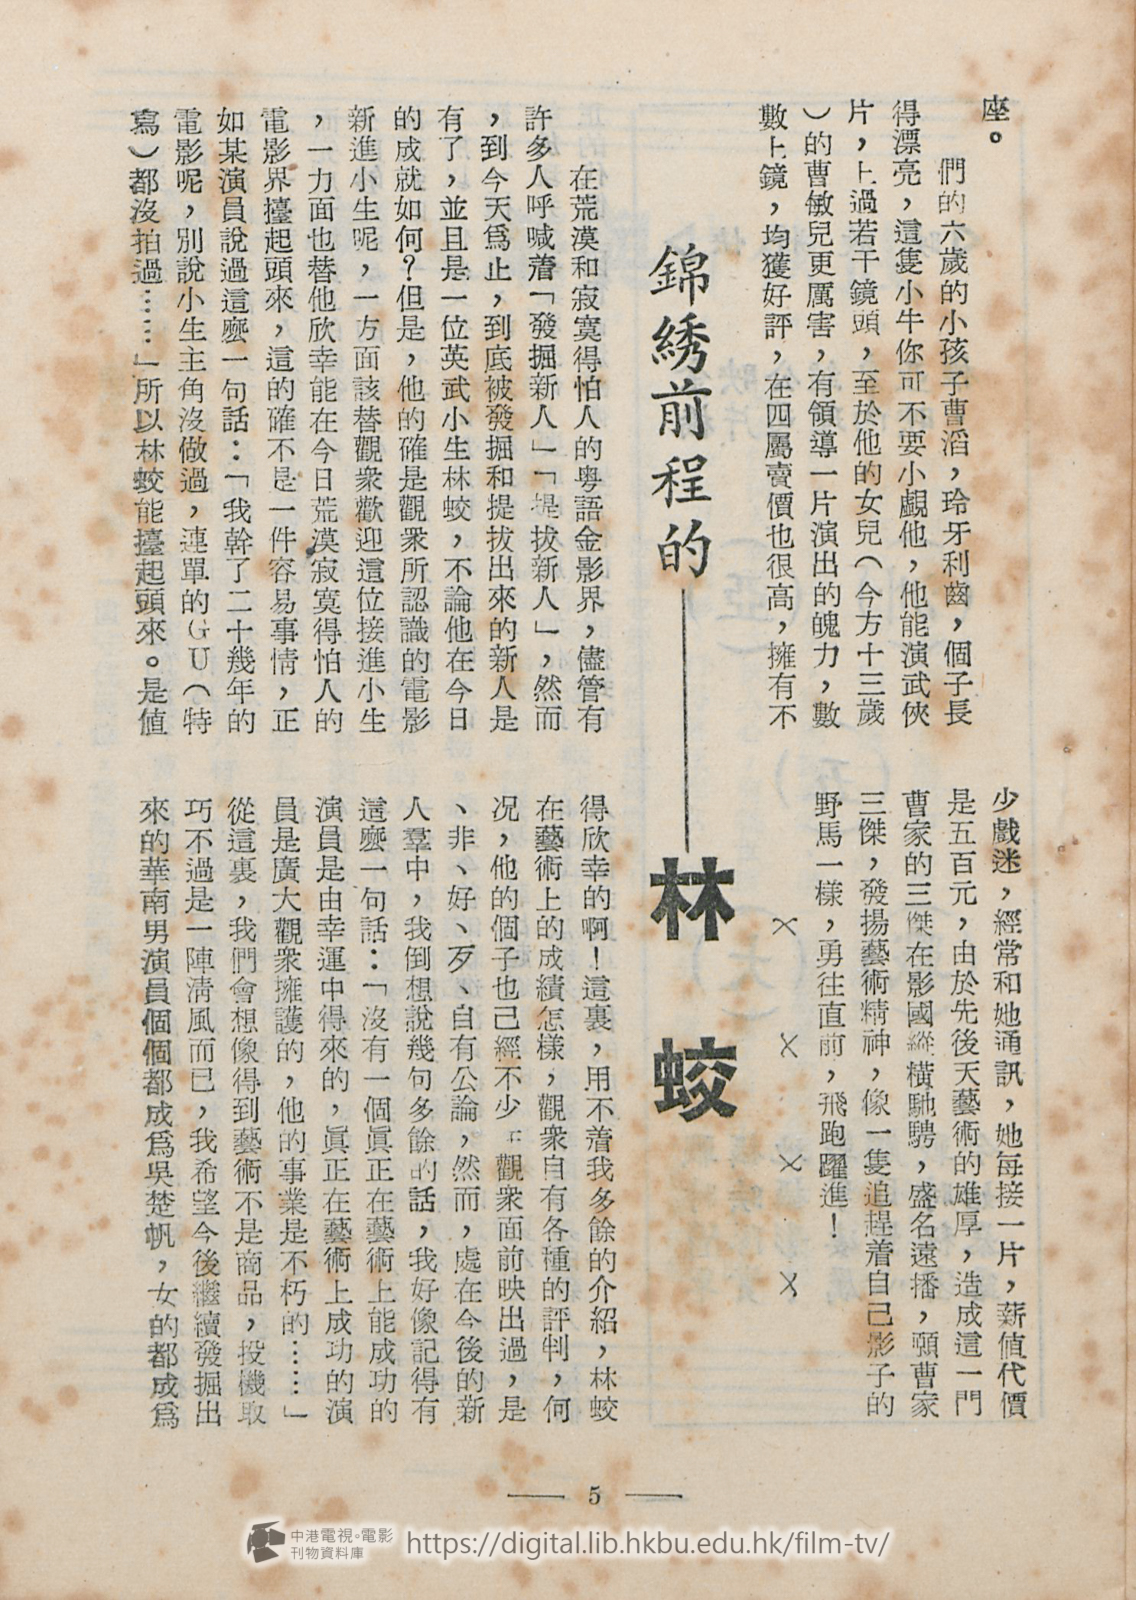 座。
們的六歲的小孩子曹滔，玲牙利齒，個子長
得漂亮，這隻小牛你可不要小覷他，他能演武俠
片，上過若干鏡頭，至於他的女兒（今方十三歲
）的曹敏兒更厲害，有領導一片演出的魄力，數
數上鏡，均獲好評，在四屬賣價也很高，擁有不
少戲迷，經常和她通訊，她每接一片，薪值代價
是五百元，由於先後天藝術的雄厚，造成這一門
曹家的三傑在影國縱橫馳騁，盛名遠播，願曹家
三傑，發揚藝術精神，像一隻追趕着自己影子的
野馬一樣，勇往直前，飛跑躍進！
×　×　×　×
錦綉前程的——林蛟
在荒漠和寂寞得怕人的粵語金影界，儘管有
許多人呼喊着「發掘新人」「提拔新人」，然而
，到今天爲止，到底被發掘和提拔出來的新人是
有了，並且是一位英武小生林蛟，不論他在今日
的成就如何？但是，他的確是觀衆所認識的電影
新進小生呢，一方面該替觀衆歡迎這位接進小生
，一力面也替他欣幸能在今日荒漠寂寞得怕人的
電影界擡起頭來，這的確不是一件容易事情，正
如某演員說過這麽一句話：「我幹了二十幾年的
電影呢，別說小生主角沒做過，連單的GU（特
寫）都沒拍過……」所以林蛟能擡起頭來。是值
得欣幸的啊！這裏，用不着我多餘的介紹，林蛟
在藝術上的成績怎樣，觀衆自有各種的評判，何
况，他的個子也已經不少在觀衆面前映出過，是
、非、好、歹、自有公論，然而，處在今後的新
人羣中，我倒想說幾句多餘的話，我好像記得有
這麽一句話：「沒有一個眞正在藝術上能成功的
演員是由幸運中得來的，眞正在藝術上成功的演
員是廣大觀衆擁護的，他的事業是不朽的……」
從這裏，我們會想像得到藝術不是商品，投機取
巧不過是一陣清風而已，我希望今後繼續發掘出
來的華南男演員個個都成爲吳楚帆，女的都成爲
— 5 —
中港電視·電影
刊物資料庫
https://digital.lib.hkbu.edu.hk/film-tv/